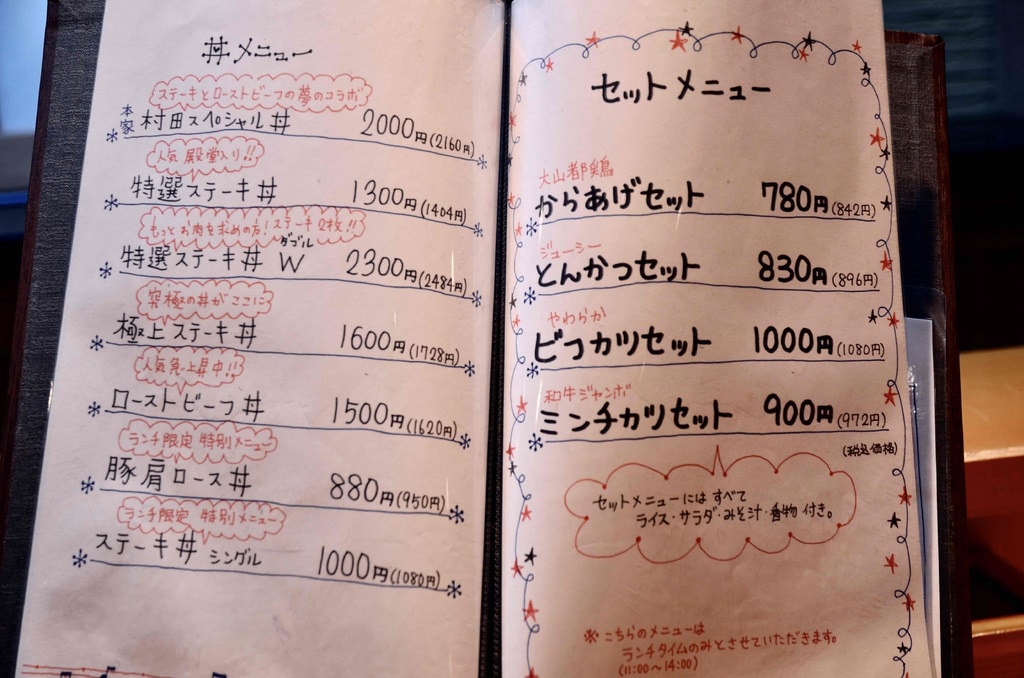 丼メニュー
ステーキとローストビーフの夢のコラボ
本家 村田スペシャル丼 2000円(2160円)
人気 殿堂入り!!
特選ステーキ丼 1300円(1404円)
もっとお肉を求めの方!ステーキ2枚!!
ダブル
特選ステーキ丼 W 2300円(2484円)
究極の丼がここに
極上ステーキ丼 1600円(1728円)
人気急上昇中!!
ローストビーフ丼 1500円(1620円)
ランチ限定 特別メニュー
豚肩ロース丼 880円(950円)
ランチ限定 特別メニュー
ステーキ丼 シングル 1000円(1080円)
セットメニュー
大山都鶏
からあげセット 780円(842円)
ジューシー
とんかつセット 830円(896円)
やわらか
ビフカツセット 1000円(1080円)
和牛ジャンボ
ミンチカツセット 900円(972円)
(税込価格)
セットメニューには すべて
ライス・サラダ・みそ汁・香物 付き。
※こちらのメニューは
ランチタイムのみとさせていただきます。
(11:00~14:00)